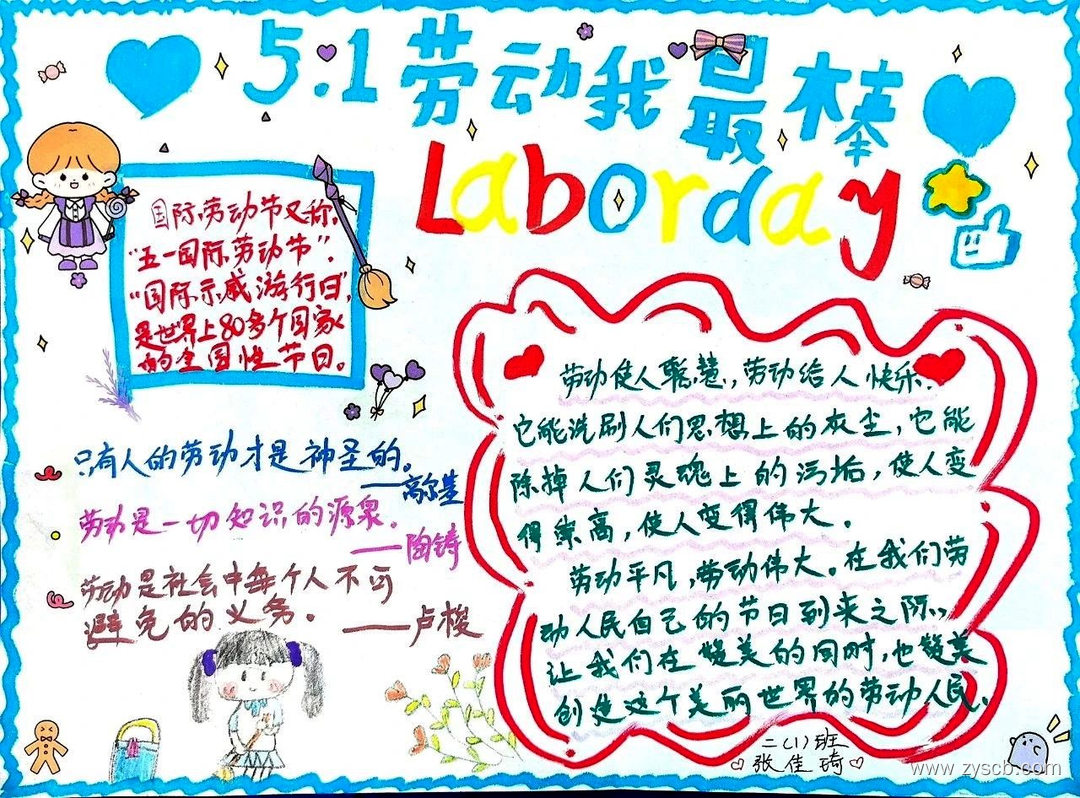 5.1劳动我最棒
Laborday
国际劳动节又称,
“五一国际劳动节”.
“国际示威游行日”,
是世界上80多个国家
的全国性节日。
只有人的劳动才是神圣的。
——高尔基
劳动是一切知识的源泉。
——陶铸
劳动是社会中每个人不可
避免的义务。——卢梭
劳动使人聪慧,劳动给人快乐.
它能洗刷人们思想上的灰尘,它能
除掉人们灵魂上的污垢,使人变
得崇高,使人变得伟大。
劳动平凡,劳动伟大。在我们劳
动人民自己的节日到来之际,
让我们在赞美的同时,也赞美
创造这个美丽世界的劳动人民。
二(1)班
张佳琦
www.zyscb.com